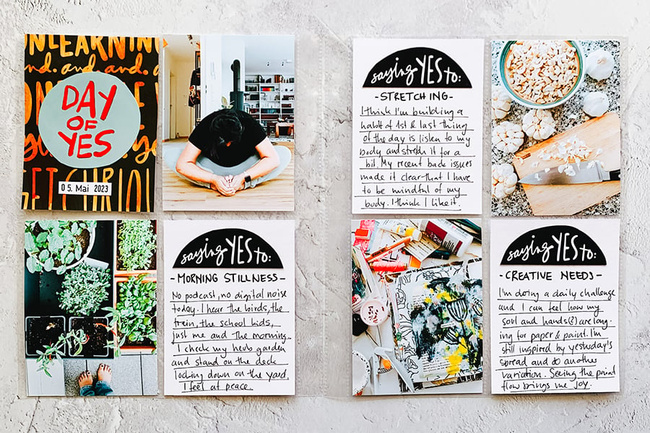 UNLEARNING
and. and. and.
DAY
OF
YES
05. Mai 2023
GET CHRISI
saying YES to:
- STRETCHING -
I think I'm building a
habit of 1st & last thing
of the day is listen to my
body and stretch it for a
bit. My recent back issues
made it clear that I have
to be mindful of my
body. I think I like it.
saying YES to:
- MORNING STILLNESS -
No podcast, no digital noise
today. I hear the birds, the
train, the school kids,
just me and the morning.
I check my herb garden
and stand on the deck
looking down on the yard.
I feel at peace.
saying YES to:
- CREATIVE NEEDS -
I'm doing a daily challenge
and I can feel how my
soul and hands(!) are long-
ing for paper & paint. I'm
still inspired by yesterday's
spread and do another
variation. Seeing the paint
flow brings me joy.